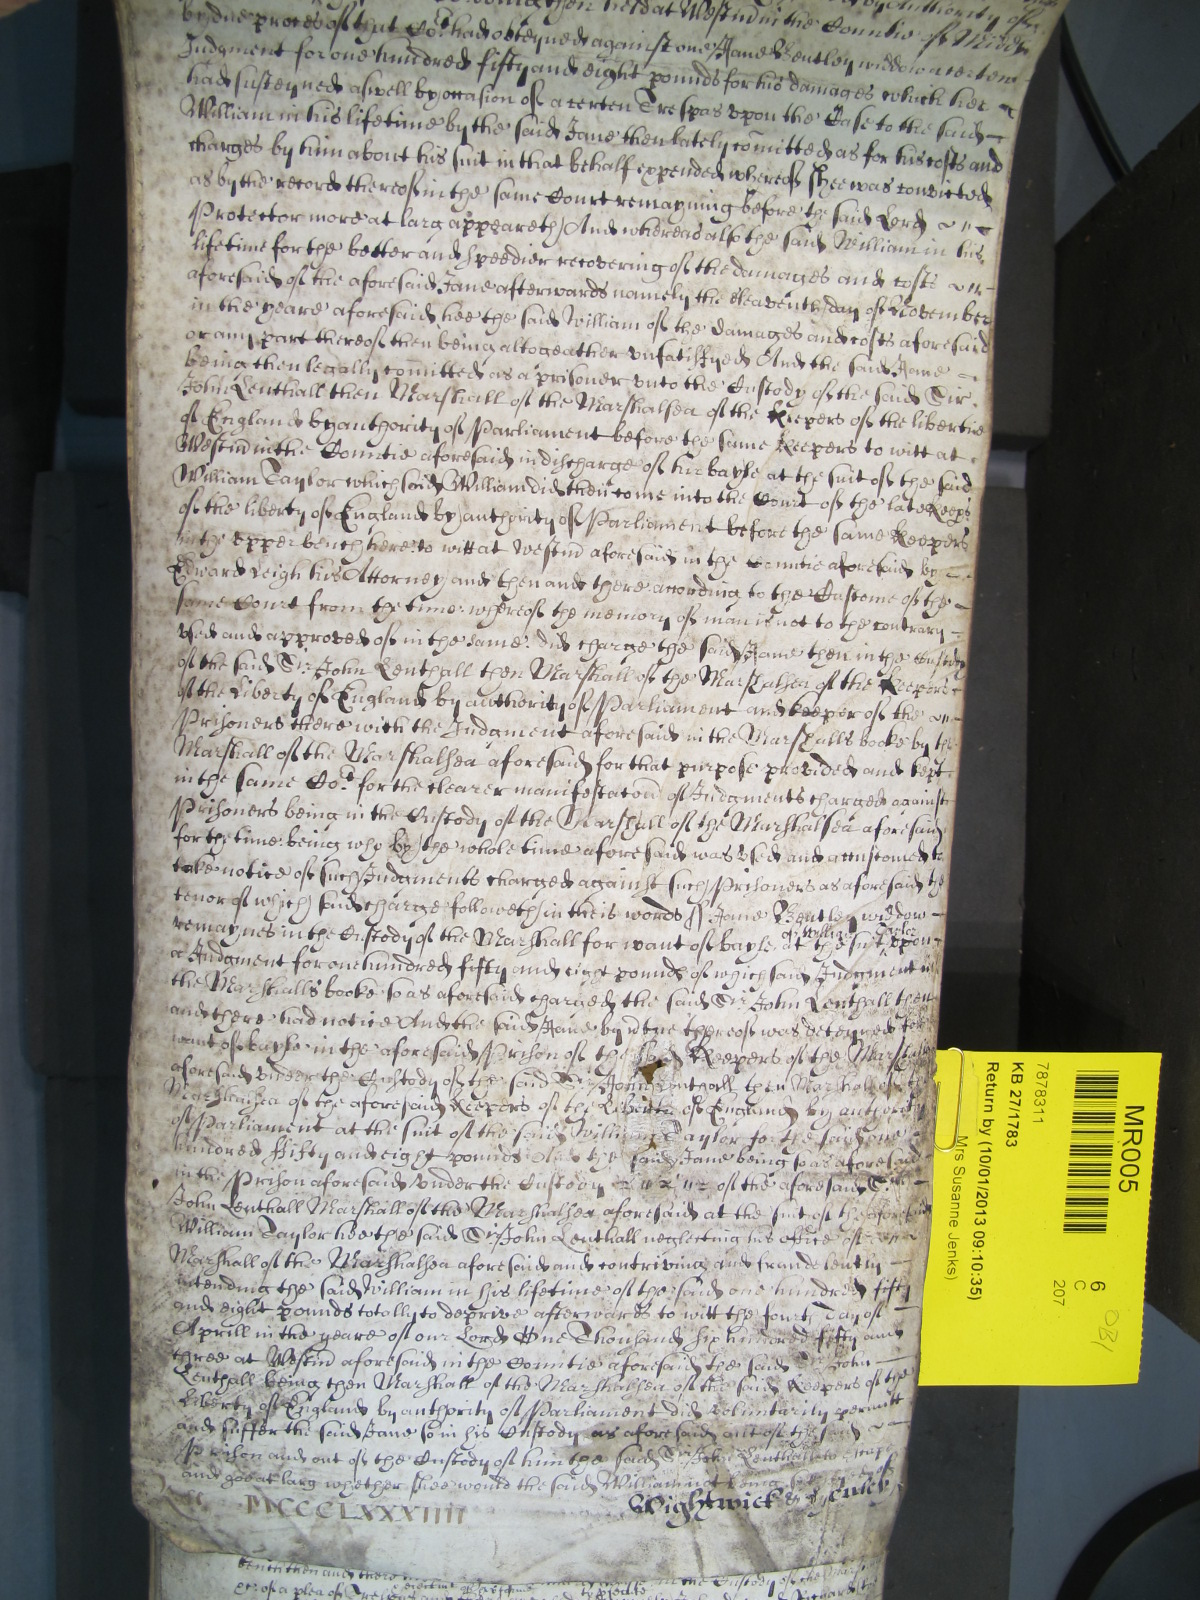 then held at Westm in the Countie of Midd
by due proces of that Cort had obteyned against one Jane Bentley widdow a certein
Judgment for one hundred fifty and eight pounds for his damages which hee
had susteyned aswell by occasion of a certen Trespas vpon the Case to the said
William in his lifetime by the said Jane then lately comitted as for his costs and
charges by him about his suit in that behalf expended whereof shee was convicted
as by the record thereof in the same Court remayning before the said Lord
Protector more at larg appeareth And whereas also the said William in his
lifetime for the better and speedier recovering of the damages and costs
aforesaid of the aforesaid Jane afterwards namely the eleaventh day of November
in the yeare aforesaid hee the said William of the damages and costs aforesaid
or any part thereof then being altogeather vnsatisfyed And the said Jane
being then legally comitted as a prisoner vnto the Custody of the said Sir
John Lenthall then Marshall of the Marshalsea of the Keepers of the libertie
of England by authority of Parliament before the same Keepers to witt at
Westm in the Countie aforesaid in discharge of her bayle at the suit of the said
William Taylor which said William did then come into the Court of the late Keeps
of the liberty of England by authority of Parliament before the same Keepers
in the vpper bench here to witt at Westm aforesaid in the Countie aforesaid by
Edward Leigh his Attorney and then and there according to the Custome of the
same Court from the time whereof the memory of man is not to the contrary
vsed and approved of in the same did charge the said Jane then in the Custody
of the said Sir John Lenthall then Marshall of the Marshalsea of the Keepers
of the Liberty of England by authority of Parliament and keeper of the
Prisoners there with the Judgment aforesaid in the Marshalls booke by the
Marshall of the Marshalsea aforesaid for that purpose provided and kept
in the same Cort for the clearer manifestacon of Judgments charged against
Prisoners being in the Custody of the Marshall of the Marshalsea aforesaid
for the time being who by the whole time aforesaid was vsed and accustomed to
take notice of such Judgments charged against such Prisoners as aforesaid the
tenor of which said charge followeth in theis words Jane Bentley widdow
remaynes in the Custody of the Marshall for want of bayle at the suit of William Taylor vpon
a Judgment for one hundred fifty and eight pounds of which said Judgment in
the Marshalls booke so as aforesaid charged the said Sir John Lenthall then
and there had notice And the said Jane by vertue thereof was deteyned for
want of bayle in the aforesaid Prison of the said Keepers of the Marshalsea
aforesaid vnder the Custody of the said Sir John Lenthall then Marshall of the
Marshalsea of the aforesaid Keepers of the Liberty of England by authority
of Parliament at the suit of the said William Taylor for the said one
hundred fifty and eight pounds And the said Jane being so as aforesaid
in the Prison aforesaid vnder the Custody of the aforesaid Sir
John Lenthall Marshall of the Marshalsea aforesaid at the suit of the aforesaid
William Taylor hee the said Sir John Lenthall neglecting his office of
Marshall of the Marshalsea aforesaid and contriving and fraudulently
intending the said William in his lifetime of the said one hundred fifty
and eight pounds totally to deprive afterwards to witt the fourth day of
Aprill in the yeare of our Lord One Thousand six hundred fifty and
three at Westm aforesaid in the Countie aforesaid the said Sir John
Lenthall being then Marshall of the Marshalsea of the said Keepers of the
Liberty of England by authority of Parliament did voluntarily permitt
and suffer the said Jane so in his Custody as aforesaid out of the said
Prison and out of the Custody of him the said Sir John Lenthall to escape
and goe at larg whether shee would the said William not being
MCCCCLXXXIIII
Wightwick
MR005
7878311
KB 27/1783
Return by (10/01/2013 09:10:35)
Mrs Susanne Jenks)
6
C
207